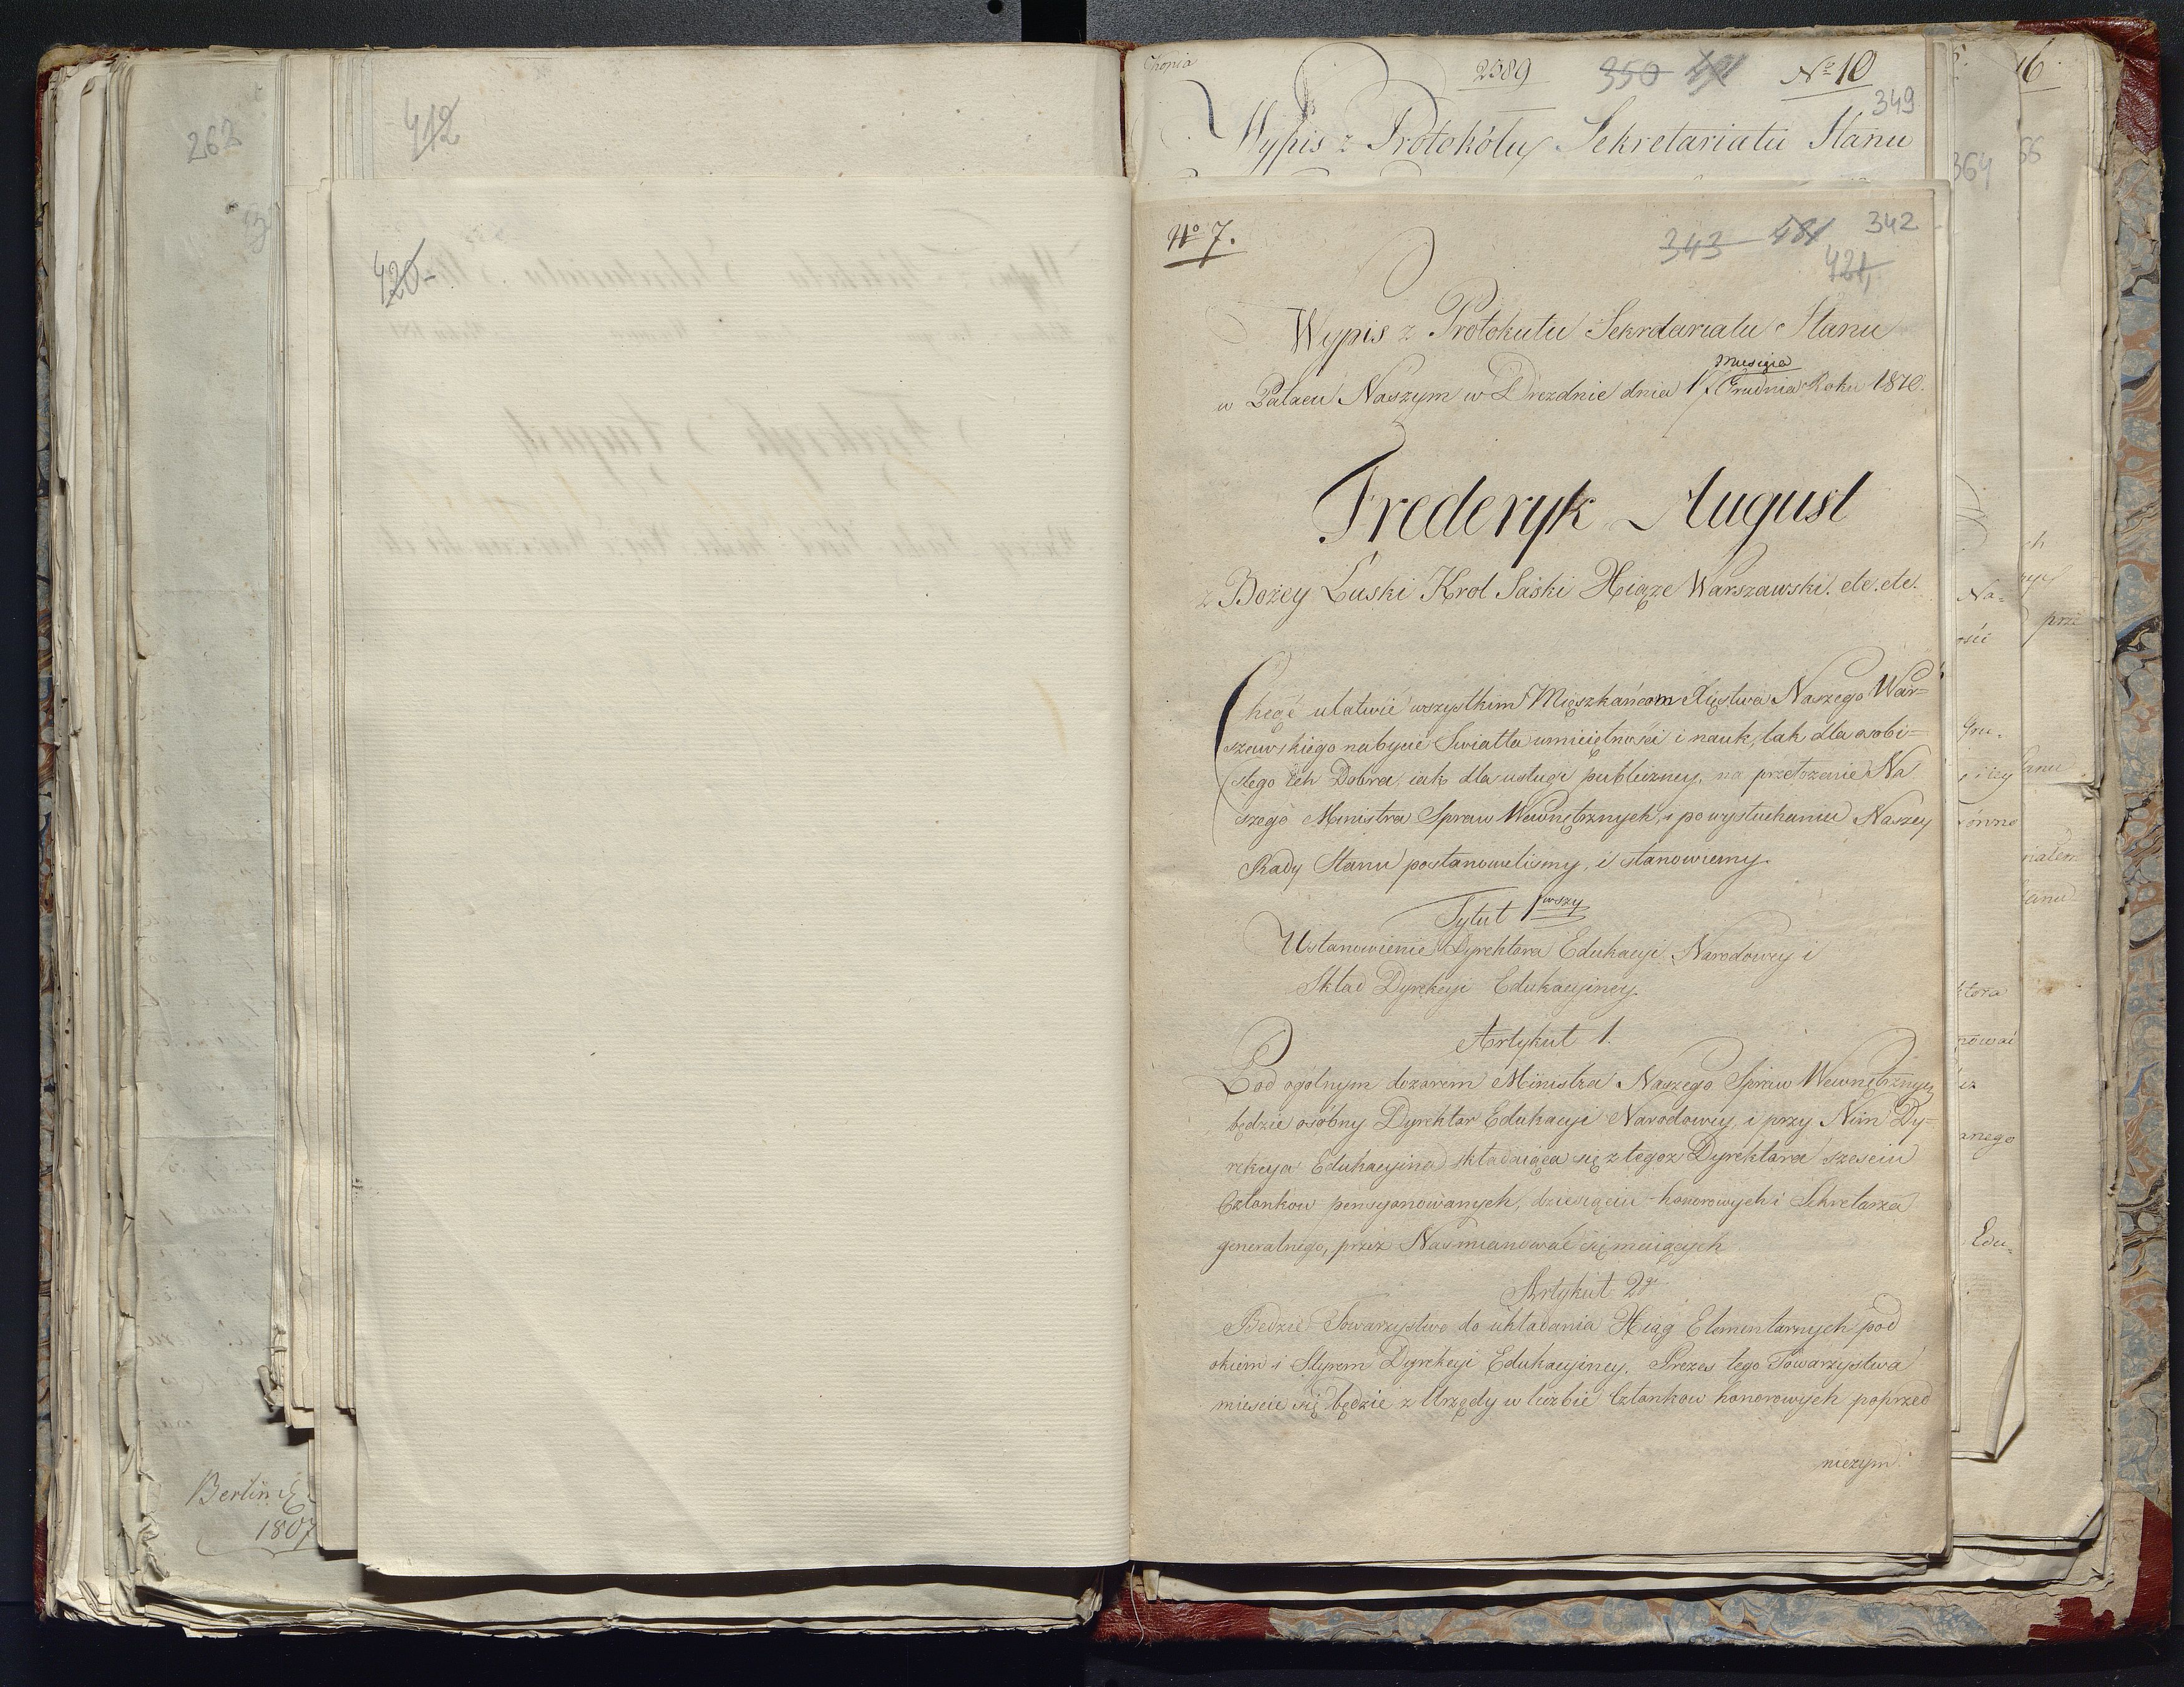 262
412
420
Berlin
1807
Kopia
2589 350 N.º 10
349
Wypis z Protokółu Sekretariatu Stanu
16.
364
N.º 7.
343 481 342
421
Wypis z Protokułu Sekrdariatu Stanu
Miesiąca
w Pałacu Naszym w Dreznie dnia 17 Grudnia Roku 1810.
Frederyk August
z Bożey Łaski Krol Saski Xiąże Warszawski. etc. etc.
Chcąc ułatwić wszystkim Mięszkańcom Xięstwa Naszego War=
szawskiego nabycie Swiatła umieiętności i nauk, tak dla osobi=
stego ich Dobra, iak dla usługi publiczney, na przełożenie Na
szego Ministra Spraw Wewnętrznych, i po wysłuchaniu Naszey
Rady Stanu postanowilismy, i stanowiemy.
Tytuł pwszy
Ustanowienie Dyrektora Edukacyi Narodowey i
Skład Dyrekcyi Edukacyiney
Artykuł 1.
Pod ogolnym dozorem Ministra Naszego Spraw Wewnętrznych
będzie osóbny Dyrektor Edukacyi Narodowey, i przy Nim Dy=
rekcya Edukacyina składaiąca się z tegoż Dyrektora szesciu
Członkow pensyonowanych, dziesięciu honorowych i Sekretarza
generalnego, przez Nas mianować się maiących
Artykuł 2gi
Będzie Towarzystwo do układania Xiąg Elementarnych pod
okiem i Styrem Dyrekcyi Edukacyiney. Prezes tego Towarzystwa
miescić się będzie z Urzędu w liczbie Członkow honorowych poprzed
niczym
Na=
prze
Gru=
Stanu
Edu=